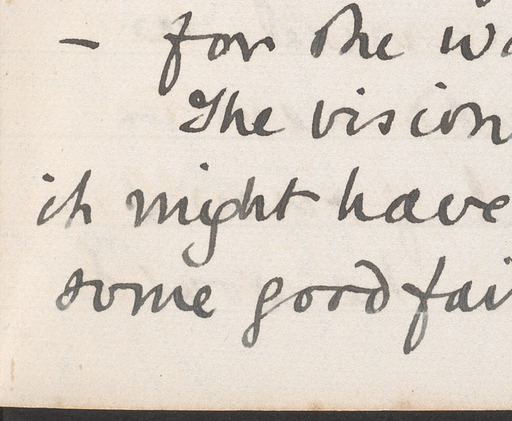 – for the wo
The vision
it might have
some good fai